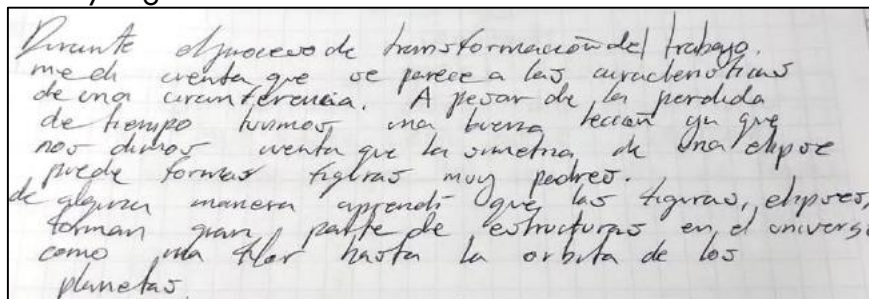 Durante el proceso de transformación del trabajo.
me di cuenta que se parece a las caracteristicas
de una circunferencia. A pesar de la perdida
de tiempo tuvimos una buena lección ya que
nos dimos cuenta que la simetria de una elipse
puede formar figuras muy padres.
de alguna manera aprendí que las figuras, elipses,
forman gran parte de estructuras en el universo
como una flor hasta la orbita de los
planetas.